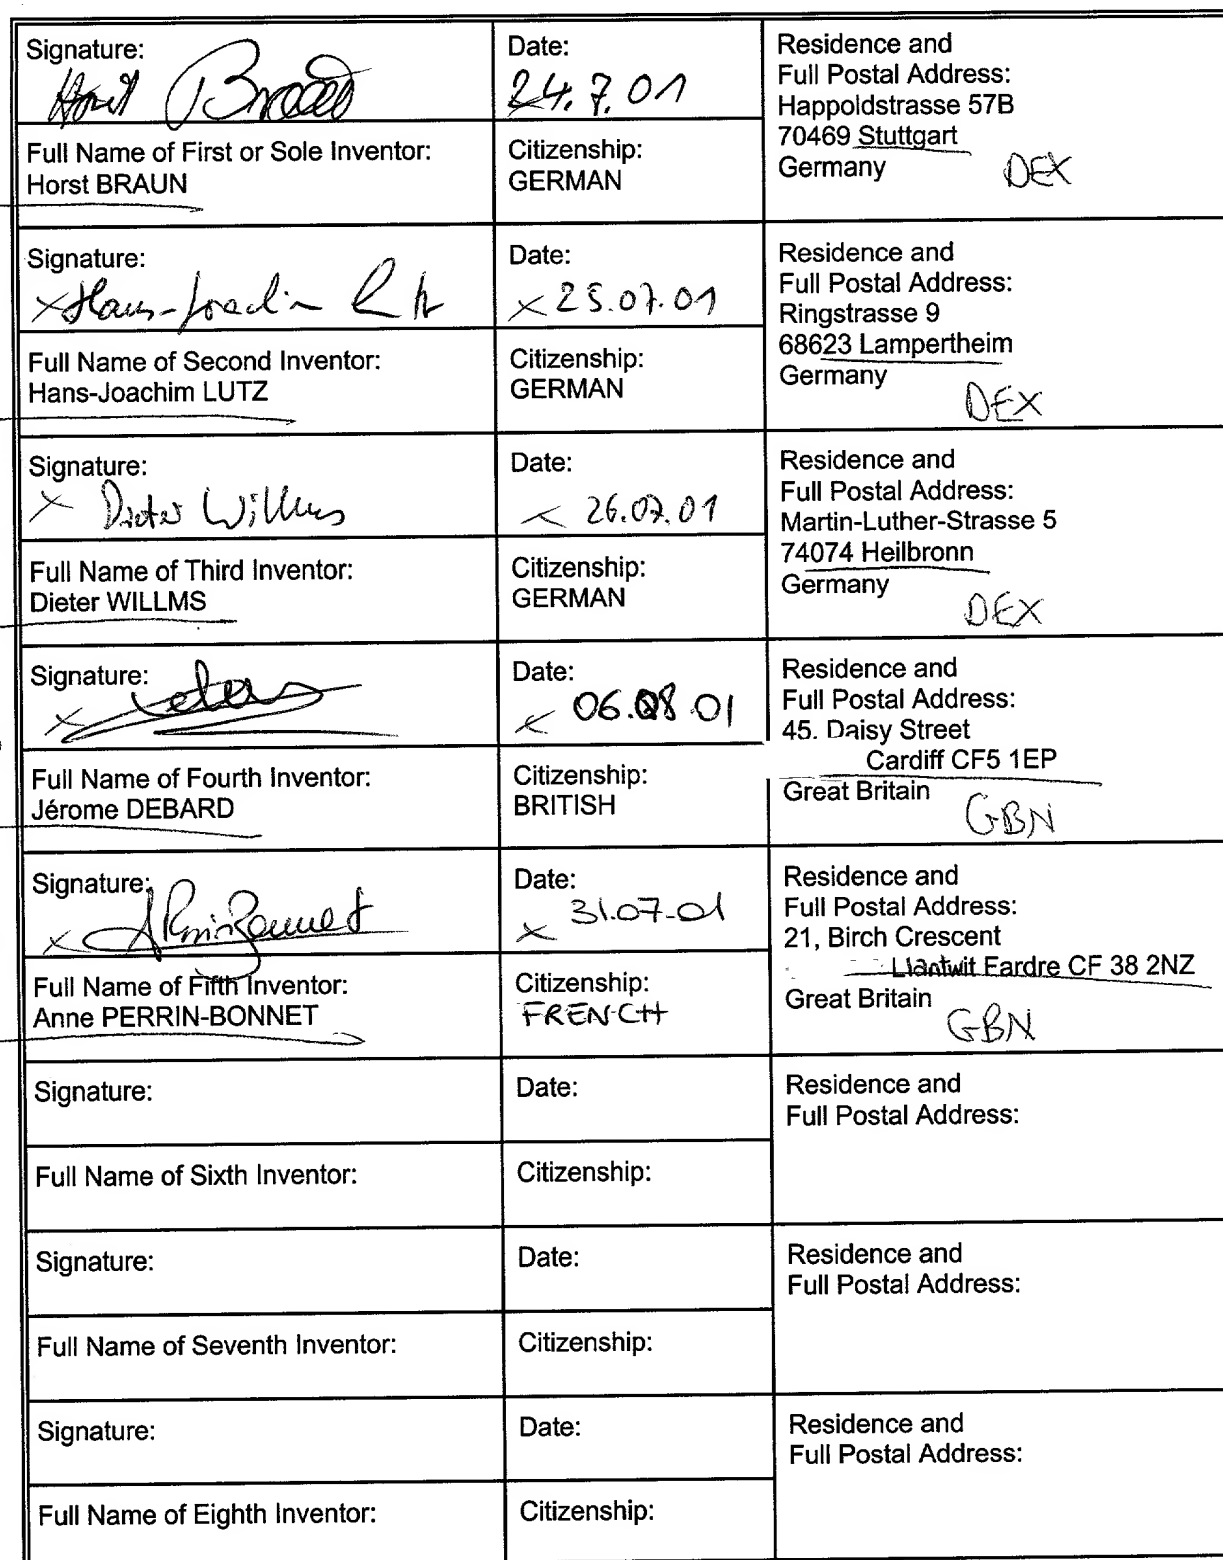 Signature:
Horst Braun
Date:
24.7.01
Residence and
Full Postal Address:
Happoldstrasse 57B
70469 Stuttgart
Germany
DEX
Full Name of First or Sole Inventor:
Horst BRAUN
Citizenship:
GERMAN
Signature:
x Hans-Joachim Lutz
Date:
x 25.07.01
Residence and
Full Postal Address:
Ringstrasse 9
68623 Lampertheim
Germany
DEX
Full Name of Second Inventor:
Hans-Joachim LUTZ
Citizenship:
GERMAN
Signature:
x Dieter Willms
Date:
x 26.07.01
Residence and
Full Postal Address:
Martin-Luther-Strasse 5
74074 Heilbronn
Germany
DEX
Full Name of Third Inventor:
Dieter WILLMS
Citizenship:
GERMAN
Signature:
x
Date:
x 06.08 01
Residence and
Full Postal Address:
45. Daisy Street
Cardiff CF5 1EP
Great Britain
GBN
Full Name of Fourth Inventor:
Jérome DEBARD
Citizenship:
BRITISH
Signature:
x APerrinBonnet
Date:
x 31.07-01
Residence and
Full Postal Address:
21, Birch Crescent
Llantwit Fardre CF 38 2NZ
Great Britain
GBN
Full Name of Fifth Inventor:
Anne PERRIN-BONNET
Citizenship:
FRENCH
Signature:
Date:
Residence and
Full Postal Address:
Full Name of Sixth Inventor:
Citizenship:
Signature:
Date:
Residence and
Full Postal Address:
Full Name of Seventh Inventor:
Citizenship:
Signature:
Date:
Residence and
Full Postal Address:
Full Name of Eighth Inventor:
Citizenship: